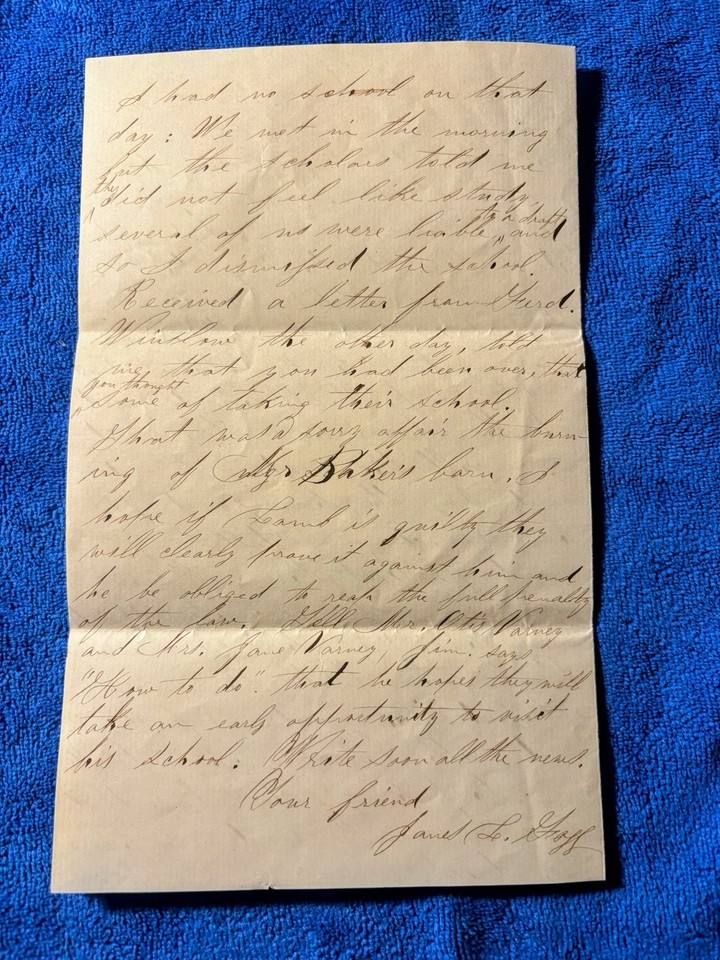 I had no school on that
day: We met in the morning
but the scholars told me
they did not feel like study,
several of us were liable to a draft, and
so I dismissed the school.
Received a letter from Ferd.
Winslow the other day, told
me that you had been over, that
you thought some of taking their school.
That was a sorry affair the burn
ing of Baker's barn. I
hope if Lamb is guilty they
will clearly prove it against him and
he be obliged to reap the full penality
of the law. Tell Mr. Otis Varney
and Mrs. Jane Varney, Jim. says
"How to do". that he hopes they will
take an early opportunity to visit
his school. Write soon all the news.
Your friend
James L. Fogg